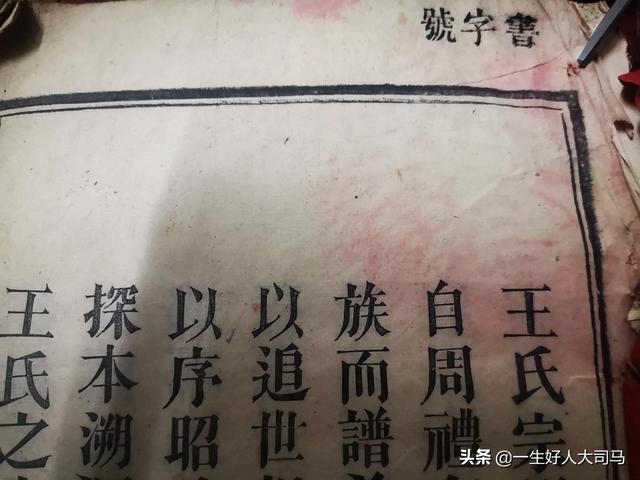 書字號
王氏宗
自周禮
族而譜
以追世
以序昭
探本溯
王氏之
头条 @一生好人大司马